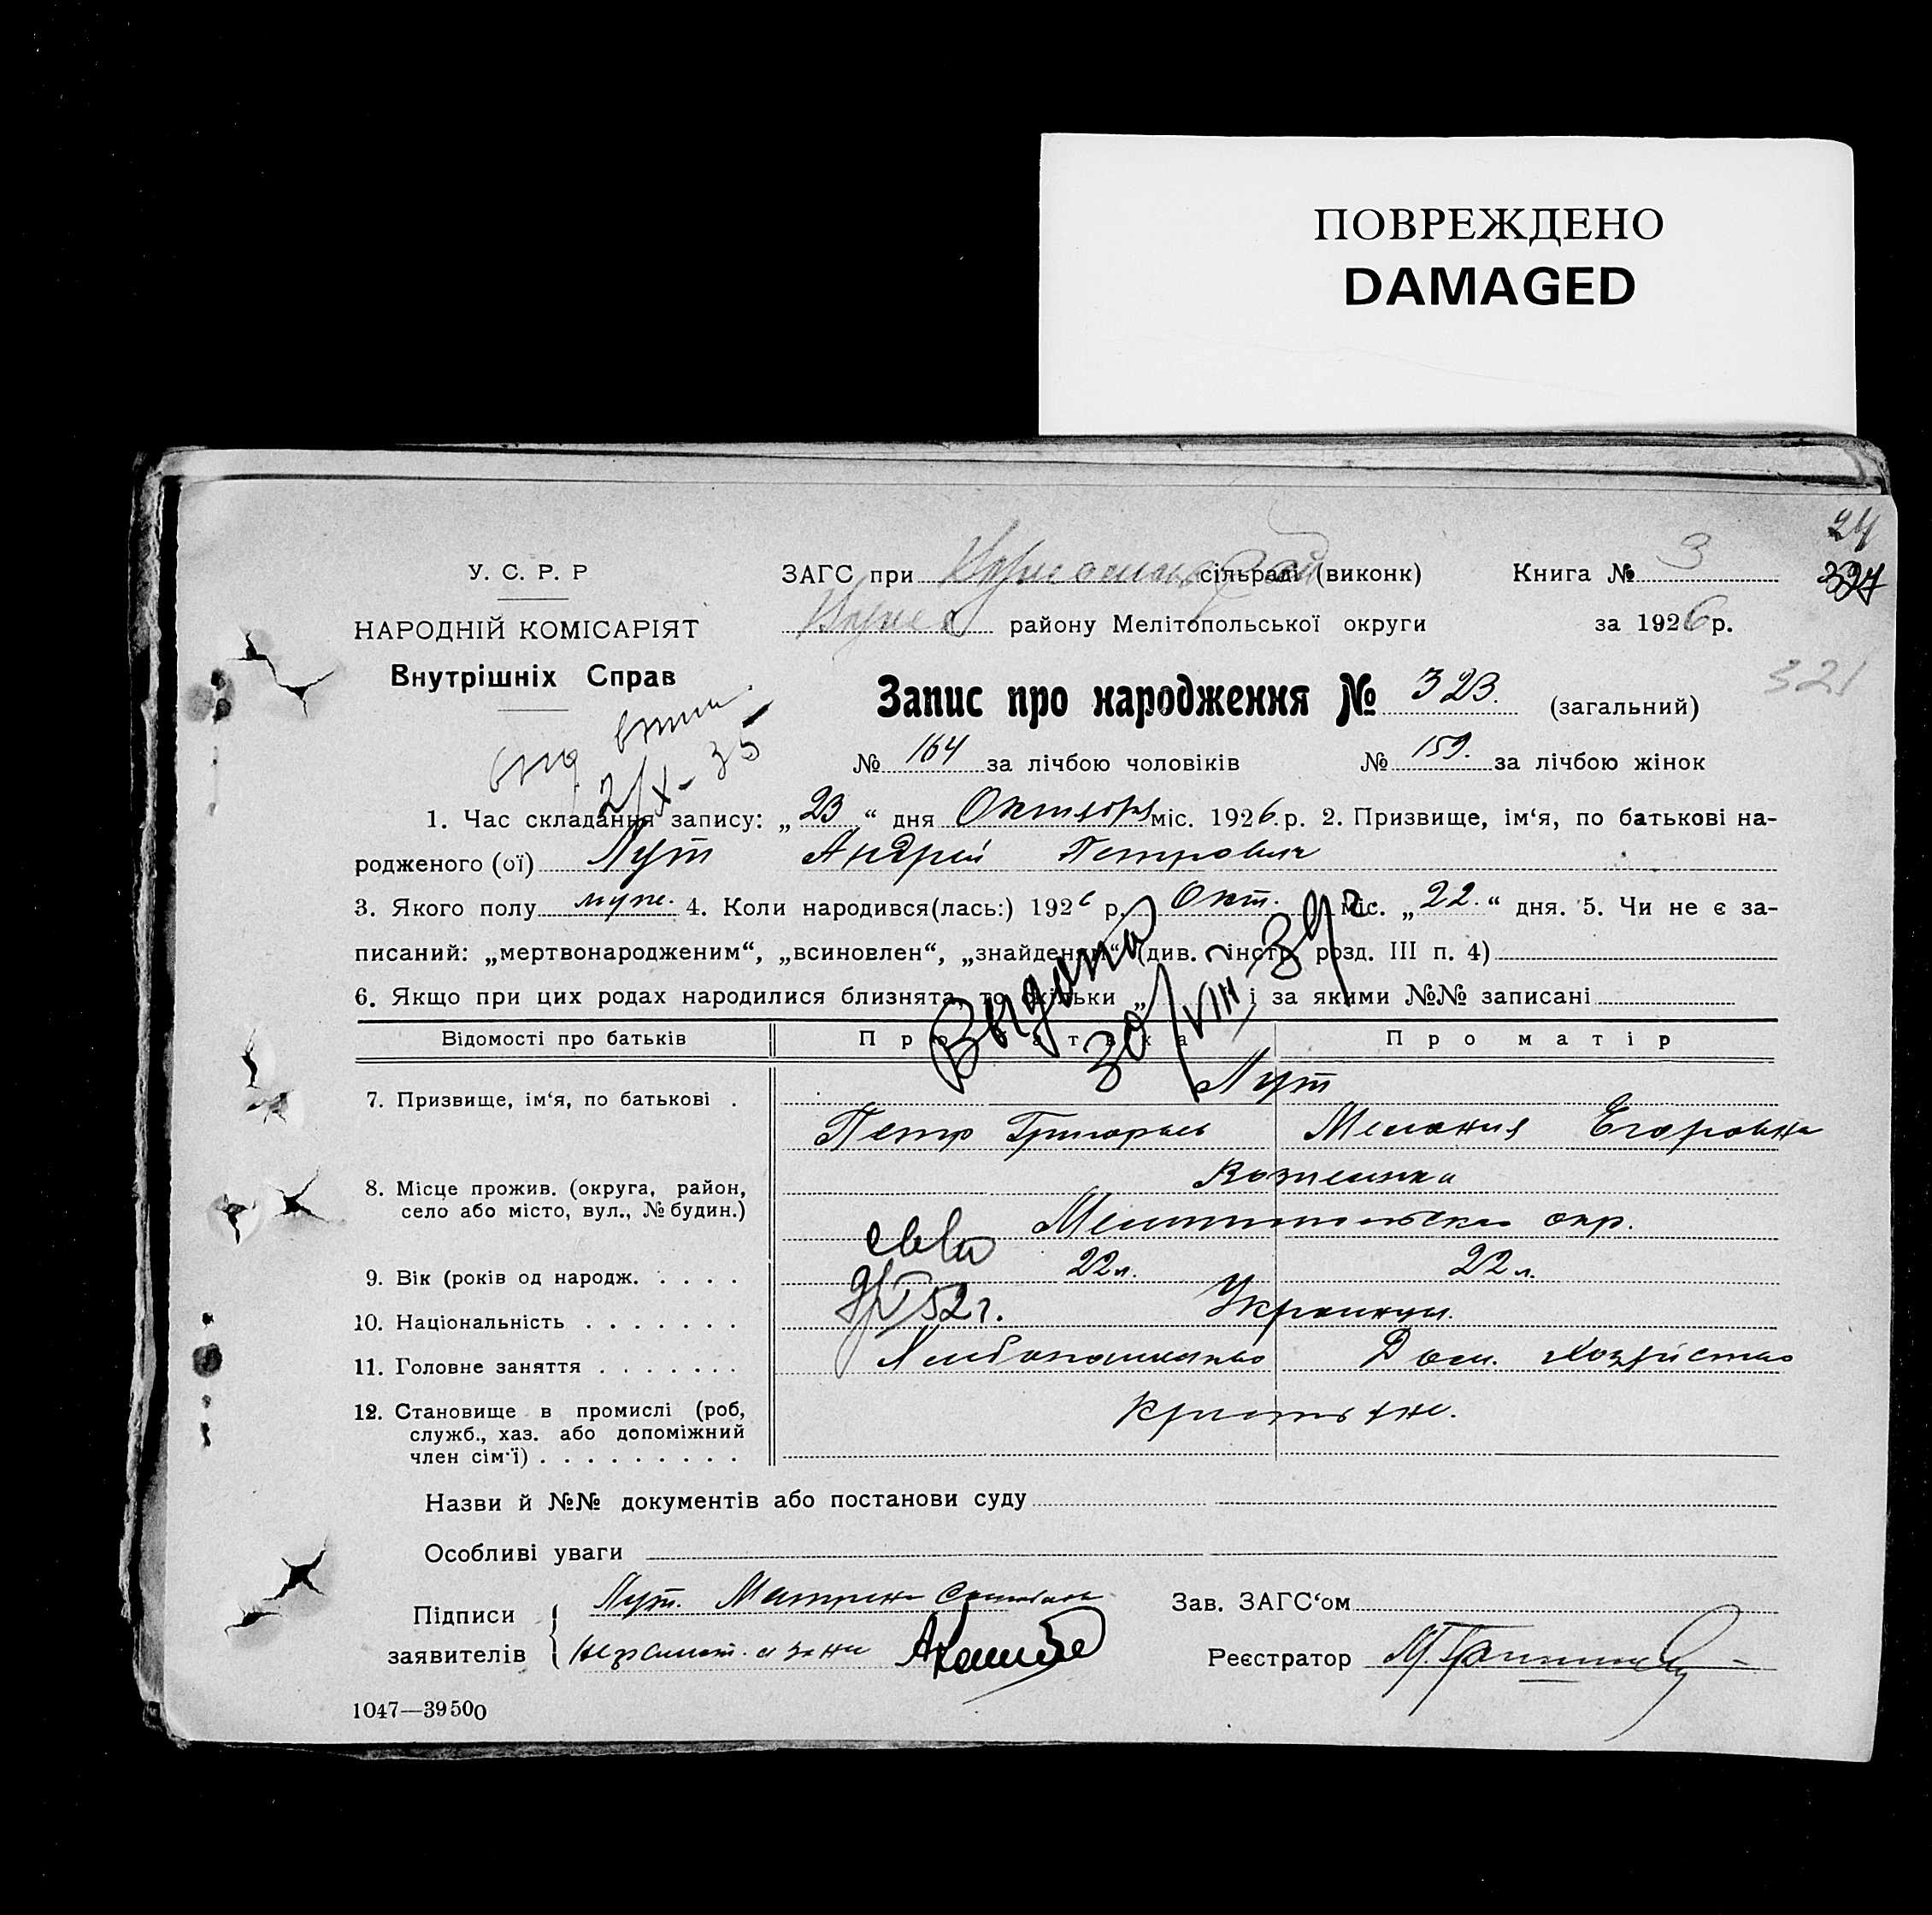 ПОВРЕЖДЕНО
DAMAGED
24
397
У. С. Р. Р
ЗАГС при сільради (виконк) Книга № 3
НАРОДНІЙ КОМІСАРІЯТ
району Мелітопольської округи за 1926 р.
Внутрішніх Справ
321
Запис про народження № 323. (загальний)
2/X - 35
№ 164 за лічбою чоловіків № 159. за лічбою жінок
1. Час складання запису: „ 23 “ дня Октября міс. 1926. р. 2. Призвище, ім‘я, по батькові на-
родженого (ої) Лут Андрей Петрович
3. Якого полу муж. 4. Коли народився(лась:) 1926 р. Окт. міс. „ 22. “ дня. 5. Чи не є за-
писаний: „мертвонародженим“, „всиновлен“, „знайденим“ (див. інстр. розд. III п. 4)
6. Якщо при цих родах народилися близнята, то скільки „ і за якими №№ записані
Выдано
30/VIII 39 г.
Відомості про батьків Про батька Про матір
Лут
7. Призвище, ім‘я, по батькові .
Петр Григорьев Мелания Егоровна
8. Місце прожив. (округа, район,
село або місто, вул., № будин.)
Мелитопольско окр.
9. Вік (років од народж. . . . . 22 л. 22 л.
52 г.
10. Національність . . . . . . . Украинцы.
11. Головне заняття . . . . . . . Хлебопашество Дом. хозяйство
12. Становище в промислі (роб,
служб., хаз. або допоміжний
член сім‘ї) . . . . . . . . .
Крестьяне.
Назви й №№ документів або постанови суду
Особливі уваги
Підписи Лут. Матрена Зав. ЗАГС‘ом
заявителів Реєстратор
1047—39500